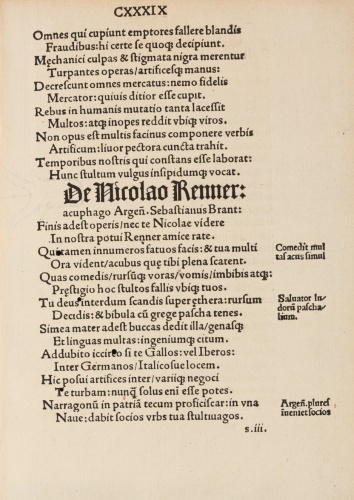 CXXXIX
Omnes qui cupiunt emptores fallere blandis
Fraudibus: hi certe se quoq; decipiunt.
Mechanici culpas & stigmata nigra merentur
Turpantes operas/artificesq; manus:
Decrescunt omnes mercatus: nemo fidelis
Mercator: quiuis ditior esse cupit.
Rebus in humanis mutatio tanta lacessit
Multos: atq; inopes reddit vbiq; viros.
Non opus est multis facinus componere verbis
Artificum: liuor pectora cuncta trahit.
Temporibus nostris qui constans esse laborat:
Hunc stultum vulgus insipidumq; vocat.
De Nicolao Renner:
acuphago Argeñ. Sebastianus Brant:
Finis adest operis/nec te Nicolae videre
In nostra potui Renner amice rate.
Qui tamen innumeros fatuos facis: & tua multi
Ora vident/acubus que tibi plena scatent.
Quas comedis/rursūq; voras/vomis/imbibis atq;:
Pręstigio hoc stultos fallis vbiq; tuos.
Tu deus interdum scandis super ęthera: rursum
Decidis: & bibula cū grege pascha tenes.
Simea mater adest buccas dedit illa/genasq;
Et linguas multas: ingeniumq; citum.
Addubito iccirco si te Gallos: vel Iberos:
Inter Germanos/Italicosue locem.
Hic posui artifices inter/variiq; negoci
Te turbam: nunq̃ solus eni esse potes.
Narragonū in patriā tecum proficiscar: in vna
Naue: dabit socios vrbs tua stultiuagos.
Comedit mul
tas acus simul
Saluator In
dorū pascha
lium.
Argeñ. plures
inueniet socios
s.iii.